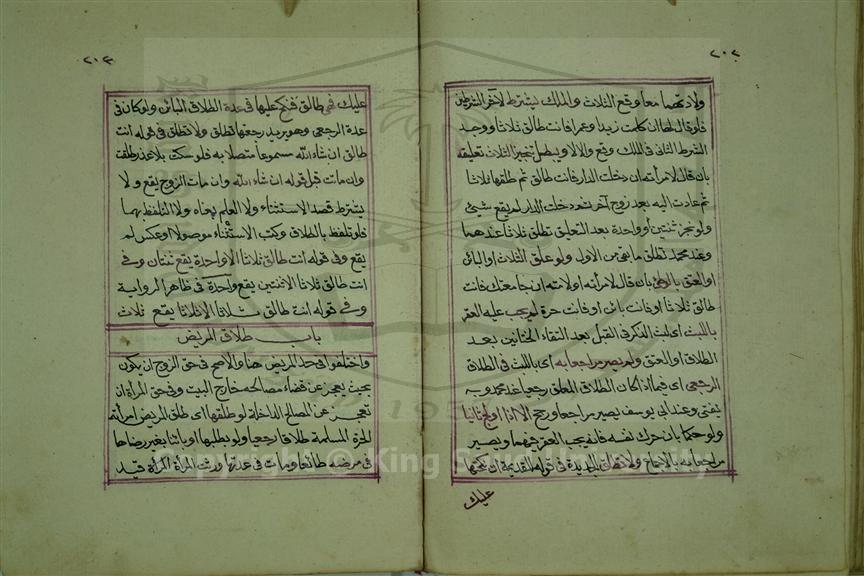 ٢٠٢
ولادتهما معا وقع الثلاث والملك يشترط لآخر الشرطين
فلو قال لها ان كلمت زيدا وعمرا فانت طالق ثلاثا ووجد
الشرط الثانى فى الملك وقع والا لا ويبطل تنجيز الثلاث تعليقه
بان قال لامرأته ان دخلت الدار فانت طالق ثم طلقها ثلاثا
ثم عادت اليه بعد زوج آخر ثم دخلت الدار لم يقع شيئ
ولو نجز ثنتين أو واحدة بعد التعليق تطلق ثلاثا عندهما
وعند محمد تطلق ما بقى من الاول ولو علق الثلاث او البائن
او العتق بالوطئ بان قال لامرأته اولامته ان جامعتك فانت
طالق ثلاثا او فانت بائن او فانت حرة لم يجب عليه العقر
باللبث اى لبث الذكر فى القبل بعد التقاء الختانين بعد
الطلاق او العتق ولم يصر مراجعا به اى باللبث فى الطلاق
الرجعى اى فيما اذا كان الطلاق المعلق رجعيا عند محمد وبه
يفتى وعند ابى يوسف يصير مراجعا ورجح الا اذا اولج ثانيا
ولو حكما بان حرك نفسه فانه يجب العقر حينئذ ويصير
مراجعا به بالاجماع ولا تطلق الجديدة فى قوله للقديمة ان نكحتها
عليك
٢٠٣
عليك فهى طالق فنكح عليها فى عدة الطلاق البائن ولو كان فى
عدة الرجعى وهو يريد رجعتها تطلق ولا تطلق فى قوله انت
طالق ان شاء الله مسموعا متصلا به فلو سكت بلا عذر طلقت
وان ماتت قبل قوله ان شاء الله وان مات الزوج يقع ولا
يشترط قصد الاستثناء ولا العلم بمعناه ولا التلفظ بهما
فلو تلفظ بالطلاق وكتب الاستثناء موصولا او عكس لم
يقع وفى قوله انت طالق ثلاثا الا واحدة يقع ثنتان وفى
انت طالق ثلاثا الا ثنتين يقع واحدة فى ظاهر الرواية
وفى قوله انت طالق ثلاثا الا ثلاثا يقع ثلاث
باب طلاق المريض
واختلفوا فى حد المريض هنا والاصح فى حق الزوج ان يكون
بحيث يعجز عن قضاء مصالحه خارج البيت وفى حق المرأة ان
تعجز عن المصالح الداخلة لو طلقها اى طلق المريض امرأته
الحرة المسلمة طلاقا رجعيا ولو بطلبها او بائنا بغير رضاها
فى مرضه طائعا ومات فى عدتها ورثت المرأة المرأة قيد
Copyright © King Saud University